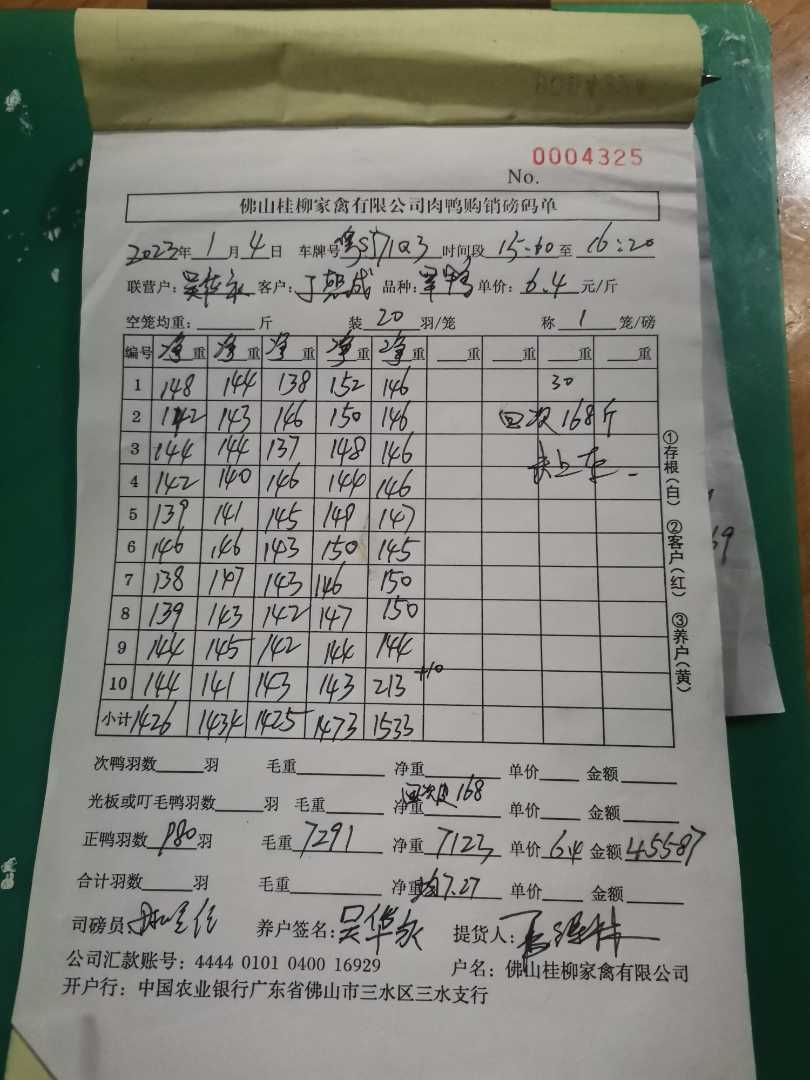 0004325
No.
佛山桂柳家禽有限公司肉鸭购销磅码单
2023年 1 月 4 日 车牌号 时间段 15:00 至 16:20
联营户: 吴华永 客户: 品种: 单鸭 单价: 6.4 元/斤
空笼均重: 斤 装 20 羽/笼 称 1 笼/磅
编号 净重 净重 净重 净重 净重 重 重 重 重
1 148 144 138 152 146 30
2 142 143 146 150 146 回次168斤
3 144 144 137 148 146 未上车
4 142 140 146 144 146
5 139 141 145 149 147
6 146 146 143 150 145
7 138 147 143 146 150
8 139 143 142 147 150
9 144 145 142 144 144
10 144 141 143 143 213 +10
小计 1426 1434 1425 1473 1533
①存根(白) ②客户(红) ③养户(黄)
次鸭羽数 羽 毛重 净重 单价 金额
光板或叮毛鸭羽数 羽 毛重 净重 回次 168 单价 金额
正鸭羽数 980 羽 毛重 7291 净重 7123 单价 6.4 金额 45587
合计羽数 羽 毛重 净重 均7.27 单价 金额
司磅员: 养户签名: 吴华永 提货人:
公司汇款账号: 4444 0101 0400 16929 户名: 佛山桂柳家禽有限公司
开户行: 中国农业银行广东省佛山市三水区三水支行
69